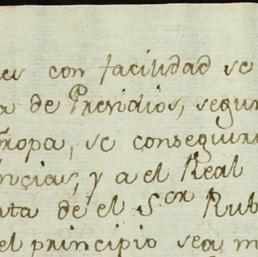 con facilidad se
a de Presidios, segun
ropa, se conseguir
ncias, y a el Real
ta de el S.^or Rub
el principio sea m